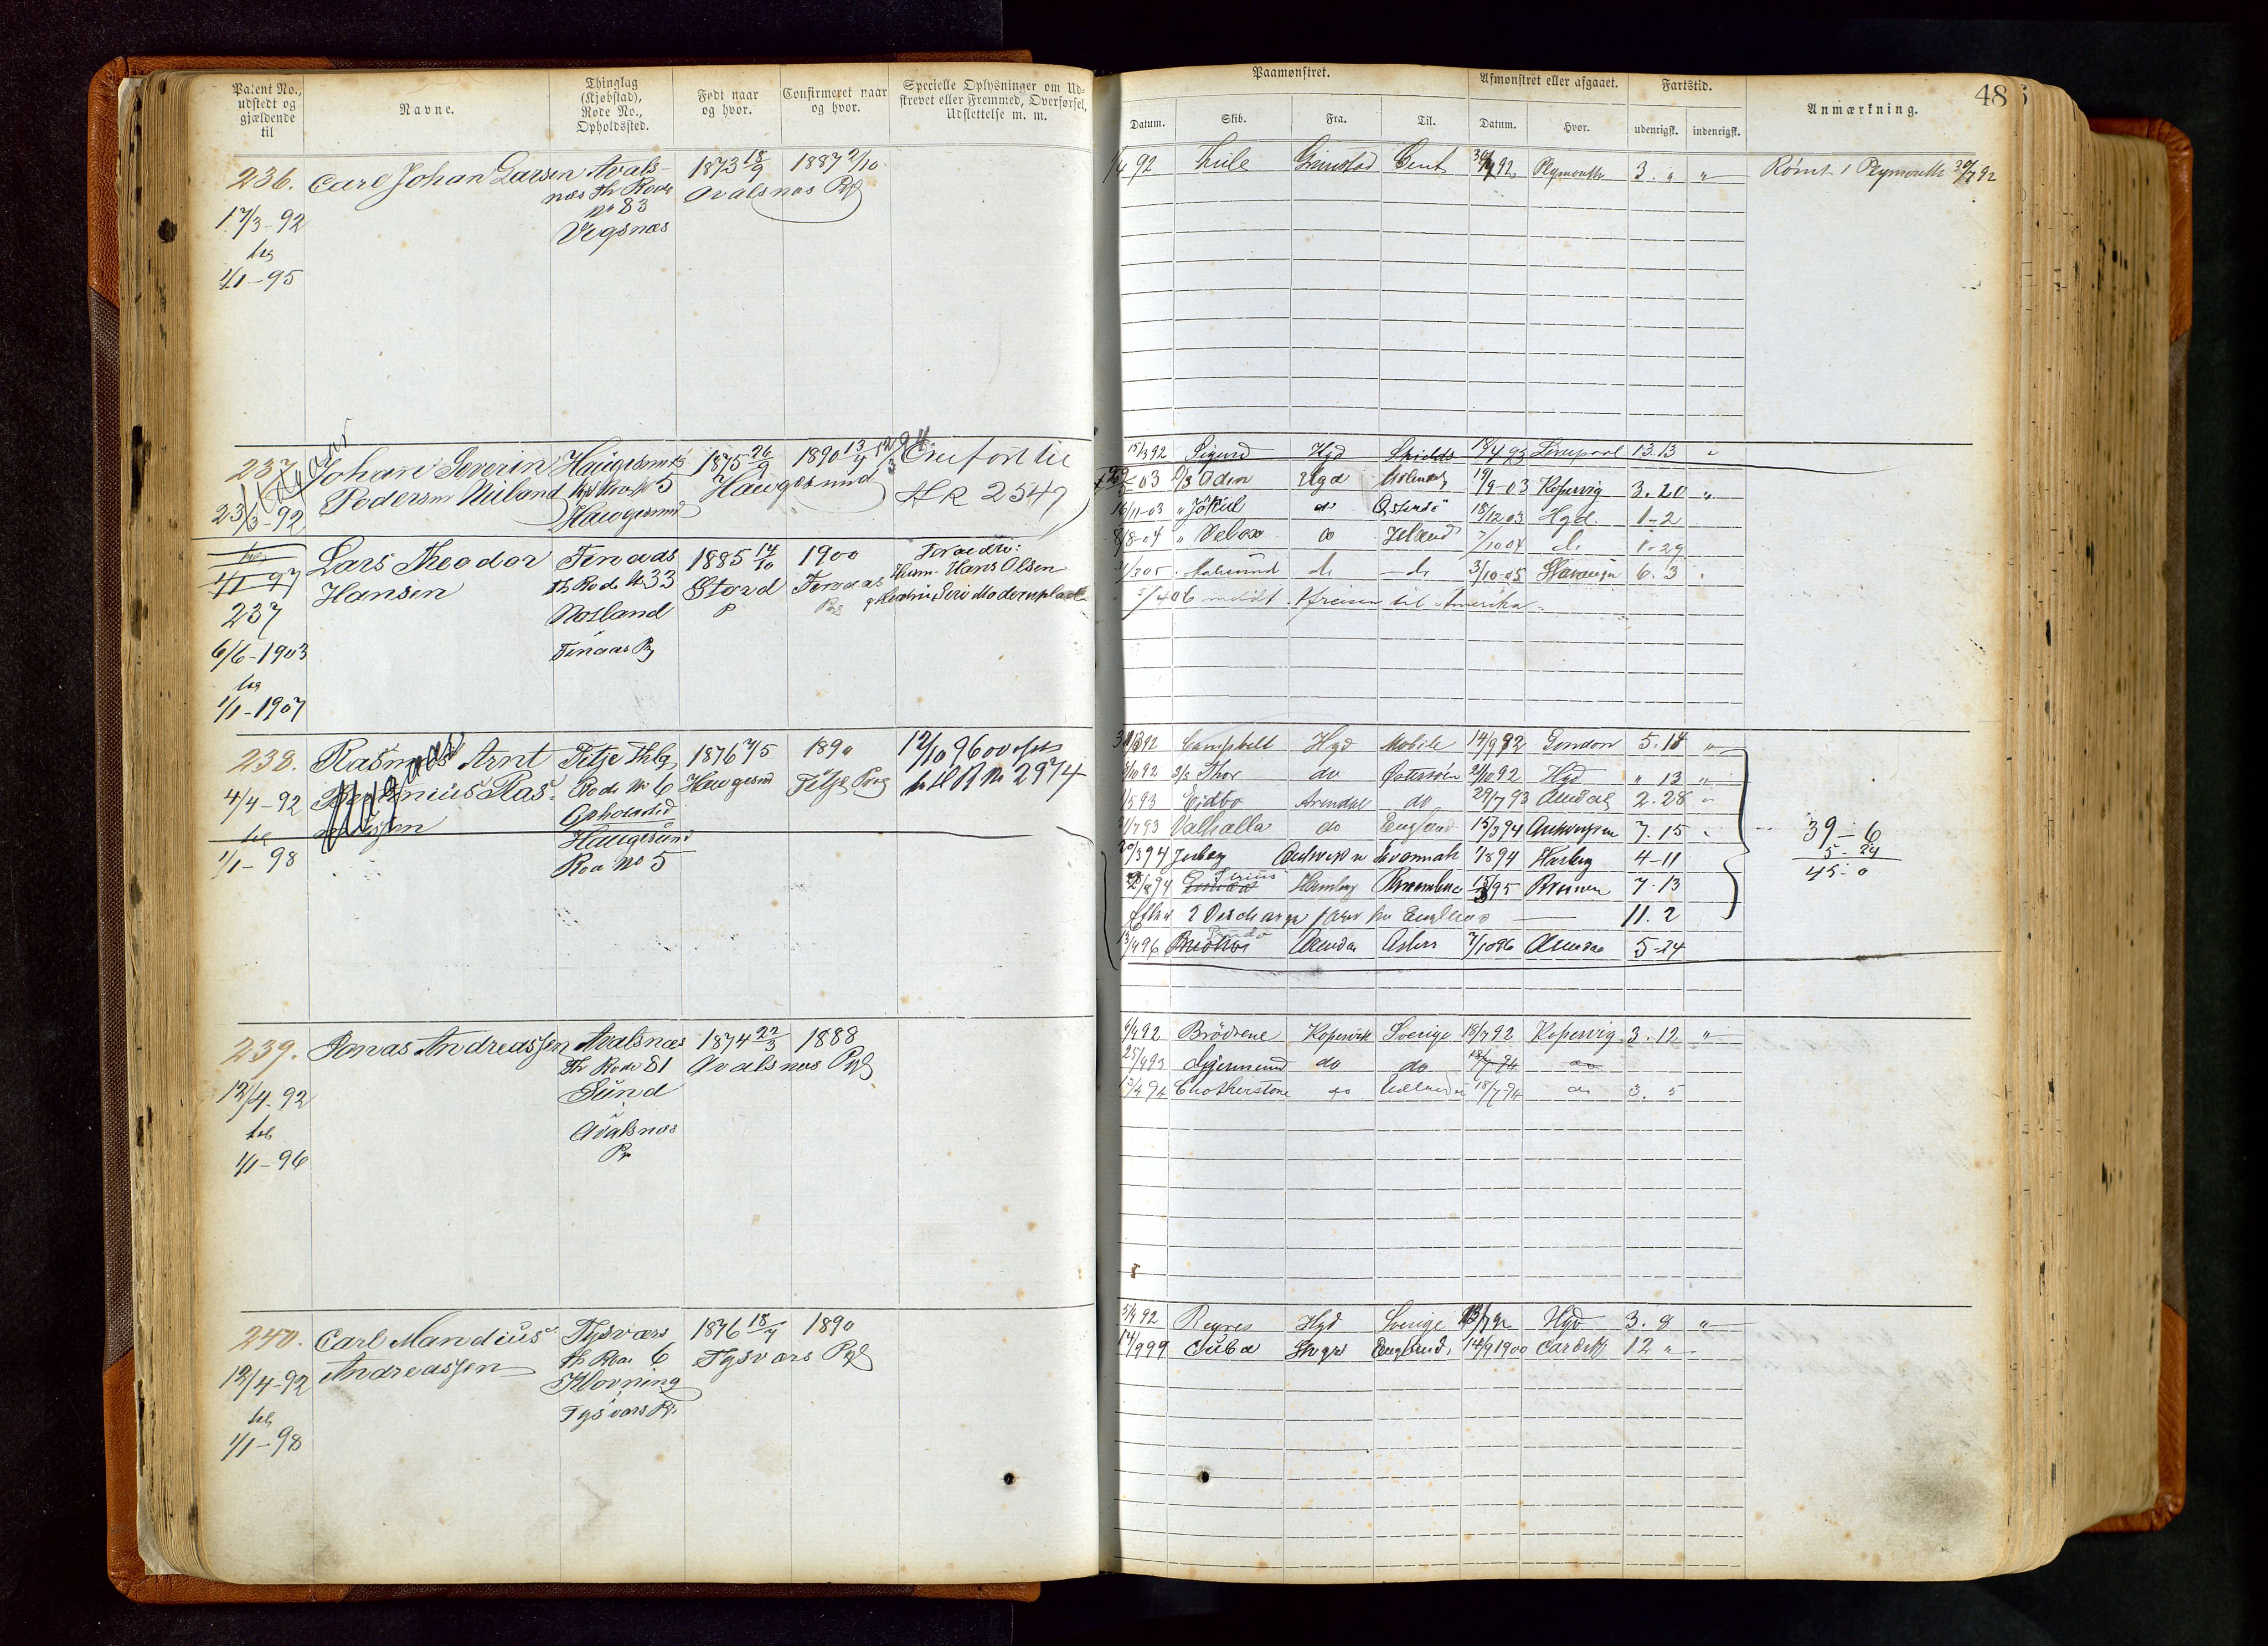 Patent No., udstedt og gjældende til
Navne.
Thinglag (Kjøbstad), Rode No., Opholdssted.
Født naar og hvor.
Confirmeret naar og hvor.
Specielle Oplysninger om Udskrevet eller Fremmed, Overførsel, Udslettelse m. m.
236.
17/3-92
til
1/1-95
Carl Johan Larsen
Avals-
næs Th Rode
No 83
Vigsnæs
1873 18/9
Avalsnæs Pgj
1887 2/10
237
23/3-92
Johan Severin
Pedersen Niiland
Haugesunds
Rode No 5
Haugesund
1875 26/9
Haugesund
1890 13/4
Overført til
H R 2547
til
1/1-97
237
6/6-1903
til
1/1-1907
Lars Theodor
Hansen
Finaas
Th Rode No 33
Nosland
Finaas Pgj
1885 14/10
Stord
P
1900
Finaas
Pgj
Forældre:
Husm. Hans Olsen
238.
4/4-92
til
1/1-98
Rasmus Arnt
Berthinius Ras-
mussen
Titje Thlg
Rode No 6
Opholdsted
Haugesund
Roa No 5
1876 7/5
Haugesund
1890
Titje Prg
12/10 96 overført
til H R No 2974
239.
12/4-92
til
1/1-96
Jonas Andreassen
Avalsnæs
Th Rode 81
Sund
Avalsnæs
Pr
1874 22/3
Avalsnæs Pgj
1888
240.
12/4-92
til
1/1-98
Carl Mandius
Andreassen
Tysvær
Th Roa 6
Hovning
Tysvær Pr
1876 18/7
Tysvær Pgj
1890
Paamønstret.
Afmønstret eller afgaaet.
Fartstid.
Anmærkning.
486
Datum.
Skib.
Fra.
Til.
Datum.
Hvor.
udenrigsk.
indenrigsk.
1/4 92 Thule Grimstad Gent 30/7 92 Plymouth 3. " " Rømt i Plymouth 30/7 92
15/3 92 Sigurd Hgd Shields 18/4 93 Liverpool 13.13 "
03 D/S Odin Hgd 19/9-03 Kopervig 3.20 "
16/11-03 " Jökul do Østersö 18/12 03 Hgd. 1-2
8/8-04 " Velox do Island /10 04 do 1-29
/3 05 Aalesund do do 3/10-05 Stavanger 6.3
/4 06 meldt Afreisen til Amerika
92 Campbell Hgd Mobile 14/9 92 London 5.14 "
/10 92 D/S Thor do Østersöen 21/10 92 Hgd " 13 "
/5 93 Eidbo Arendal do 29/7 93 Arendal 2.28 "
/7 93 Valhalla do England 15/3 94 Antwerpen 7.15 "
20/3 94 Antwerpen Savannah /8 94 Harburg 4-11
/8 94 Sirius Hamburg Pernambuco 15/3 95 Bremen 7.13
Efter 2 Discharge farer fra England 11.2
13/4 96 Arendal 7/10 96 Arendal 5-24
39-6
5-24
45-0
6/4 92 Brödrene Kopervik Sverige 18/7 92 Kopervig 3.12 "
25/4 93 Agjermund do do 18/7 94 do
13/4 94 Chotkerstone do 18/7 94 do 3. 5
5/4 92 Reynes Hgd Sverige 13/7 92 Hgd 3. 9 "
14/9 99 Cuba Hvgr England. 14/9 1900 Cardiff 12 "